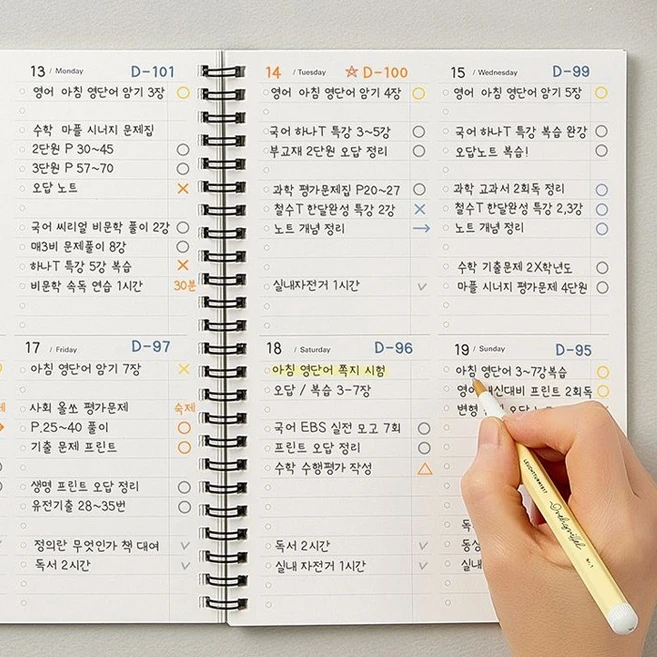 13 / Monday D-101
영어 아침 영단어 암기 3장
수학 마플 시너지 문제집
2단원 P 30~45
3단원 P 57~70
오답 노트
국어 씨리얼 비문학 풀이 2강
매3비 문제풀이 8강
하나T 특강 5강 복습
비문학 속독 연습 1시간 30분
14 / Tuesday D-100
영어 아침 영단어 암기 4장
국어 하나T 특강 3~5강
부교재 2단원 오답 정리
과학 평가문제집 P20~27
철수T 한달완성 특강 2강
노트 개념 정리
실내자전거 1시간
15 / Wednesday D-99
영어 아침 영단어 암기 5장
국어 하나T 특강 복습 완강
오답노트 복습!
과학 교과서 2회독 정리
철수T 한달완성 특강 2,3강
노트 개념 정리
수학 기출문제 2X학년도
마플 시너지 평가문제 4단원
17 / Friday D-97
아침 영단어 암기 7장
사회 올쏘 평가문제 숙제
P.25~40 풀이
기출 문제 프린트
생명 프린트 오답 정리
유전기출 28~35번
정의란 무엇인가 책 대여
독서 2시간
18 / Saturday D-96
아침 영단어 쪽지 시험
오답 / 복습 3-7장
국어 EBS 실전 모고 7회
프린트 오답 정리
수학 수행평가 작성
독서 2시간
실내 자전거 1시간
19 / Sunday D-95
아침 영단어 3~7강복습
프린트 2회독
변형
LEUCHTTURM1917